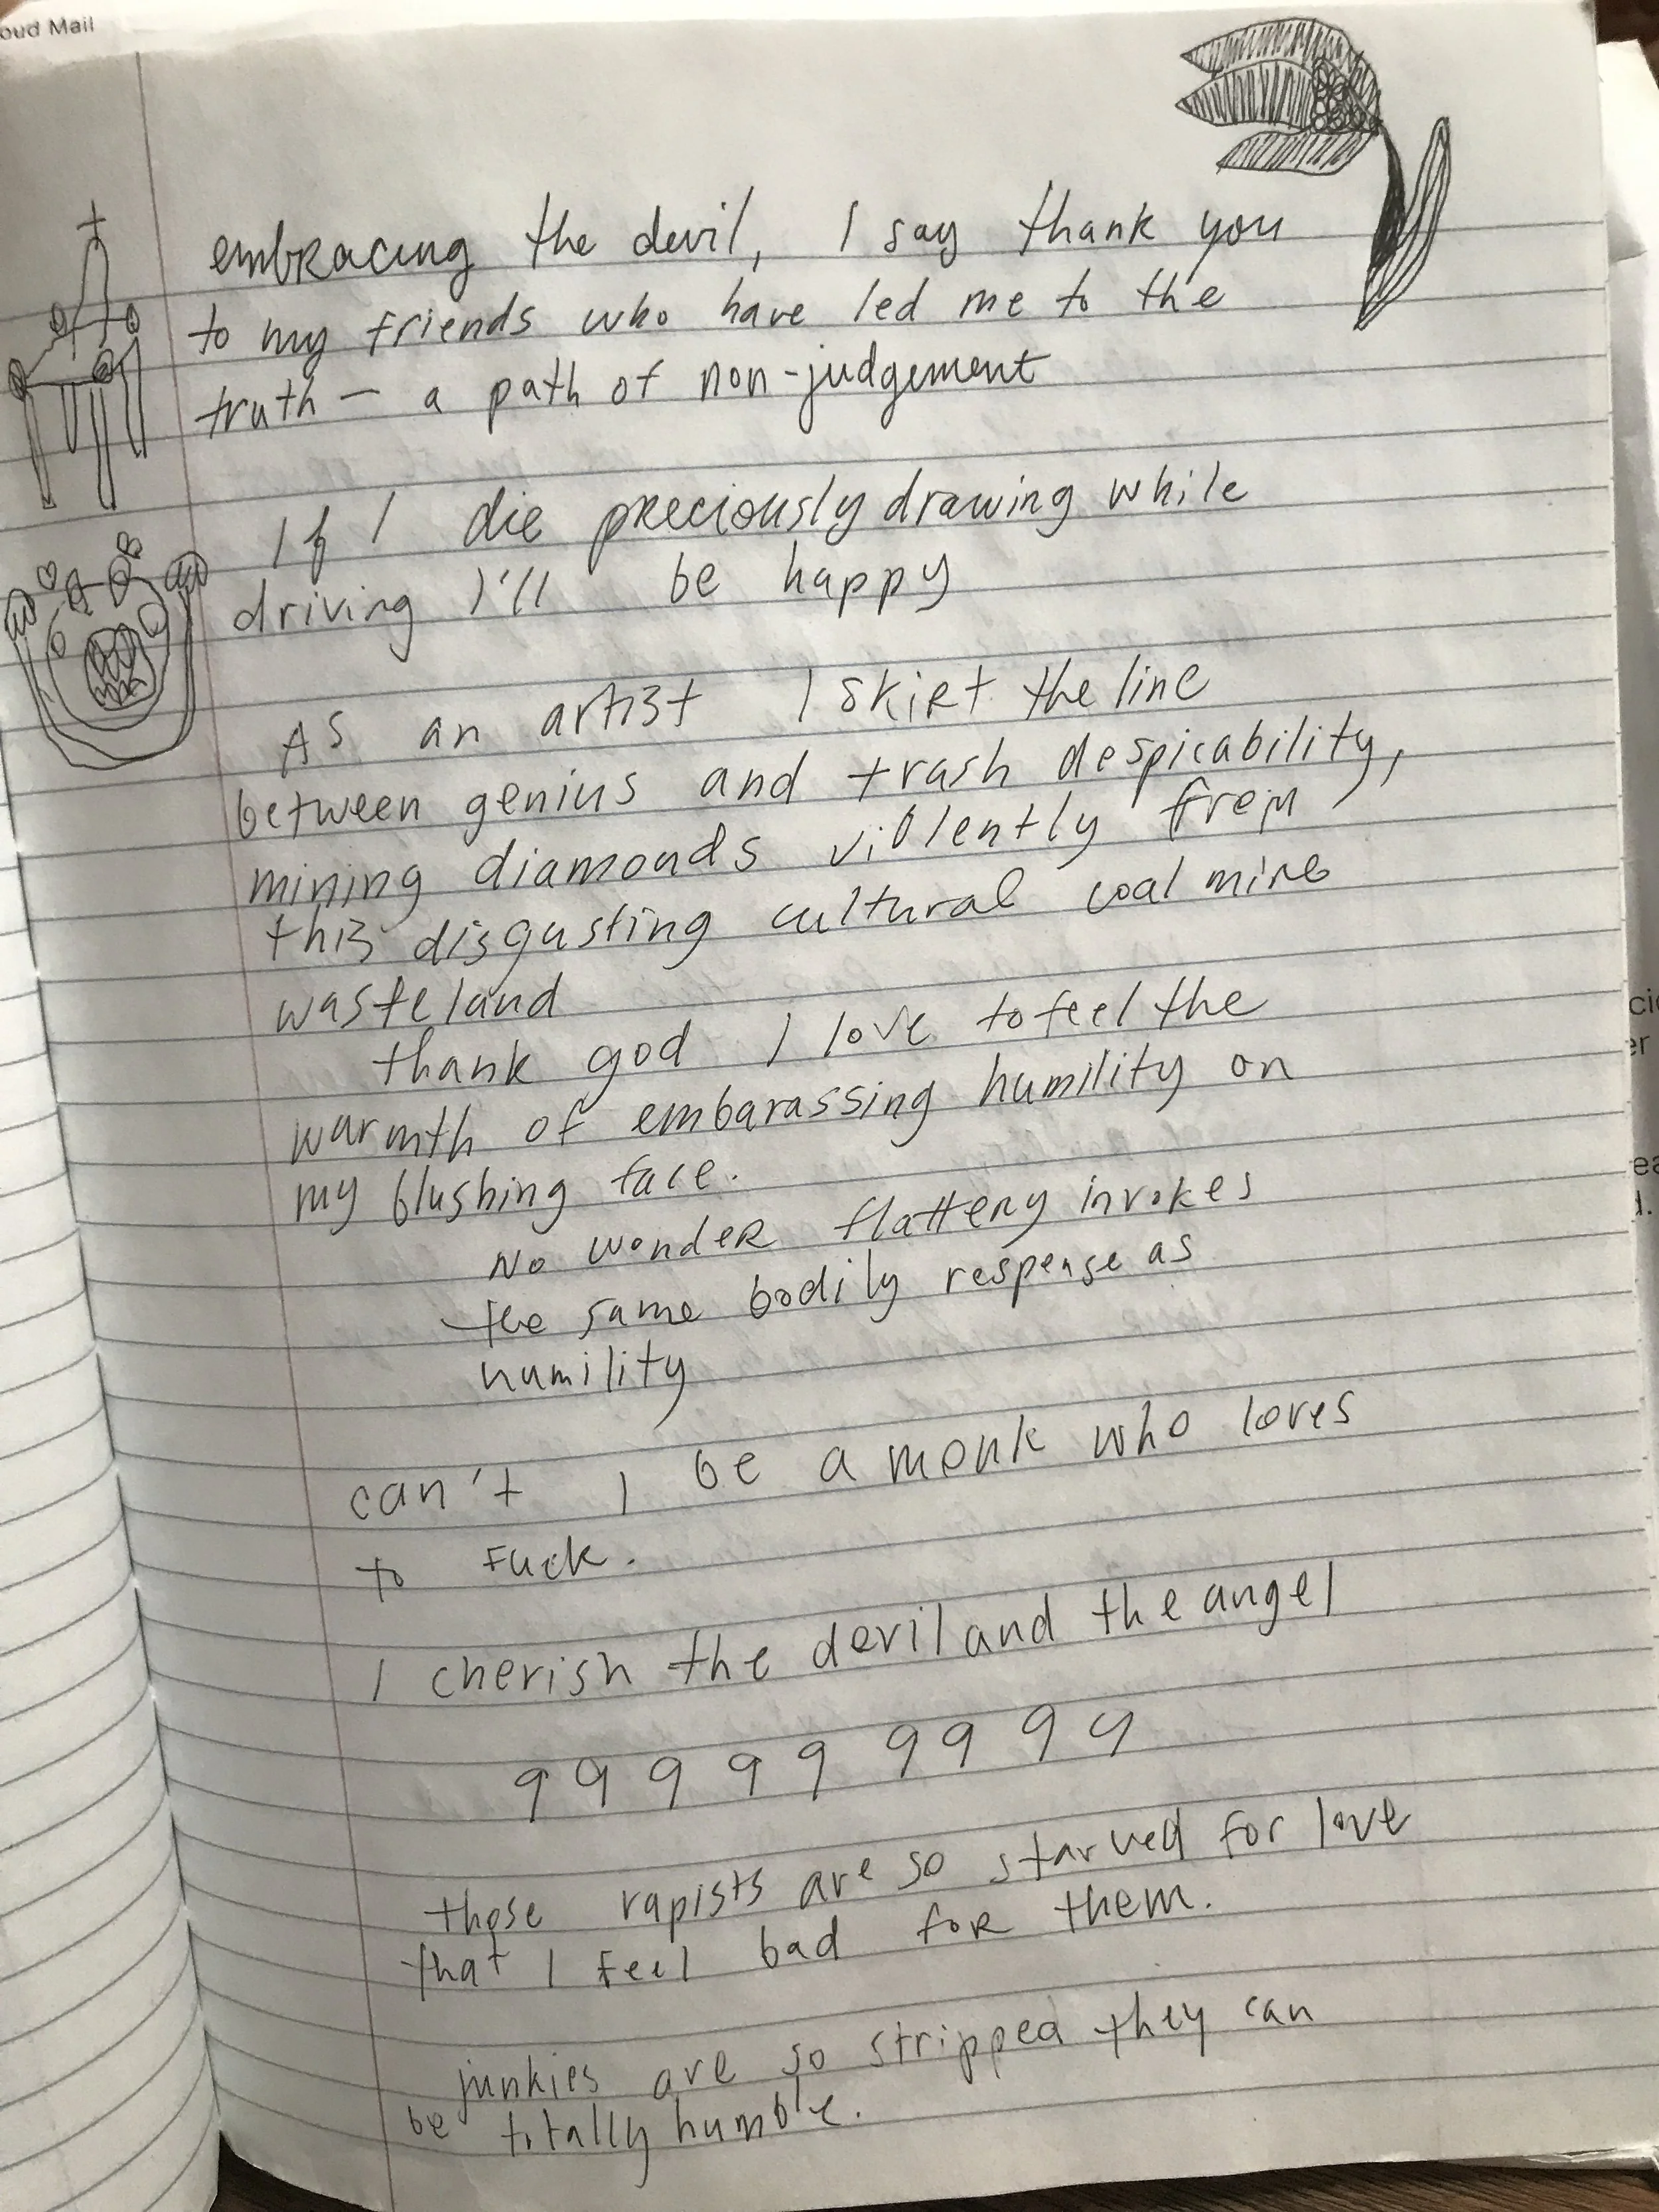 oud Mail
embracing the devil, I say thank you
to my friends who have led me to the
truth — a path of non-judgement
If I die preciously drawing while
driving I'll be happy
As an artist I skirt the line
between genius and trash despicability,
mining diamonds violently from
this disgusting cultural coal mine
wasteland
thank god I love to feel the
warmth of embarassing humility on
my blushing face.
No wonder flattery invokes
the same bodily response as
humility
can't I be a monk who loves
to fuck.
I cherish the devil and the angel
9 9 9 9 9 9 9 9 9
those rapists are so starved for love
that I feel bad for them.
junkies are so stripped they can
be totally humble.
ci
er
ea
d.